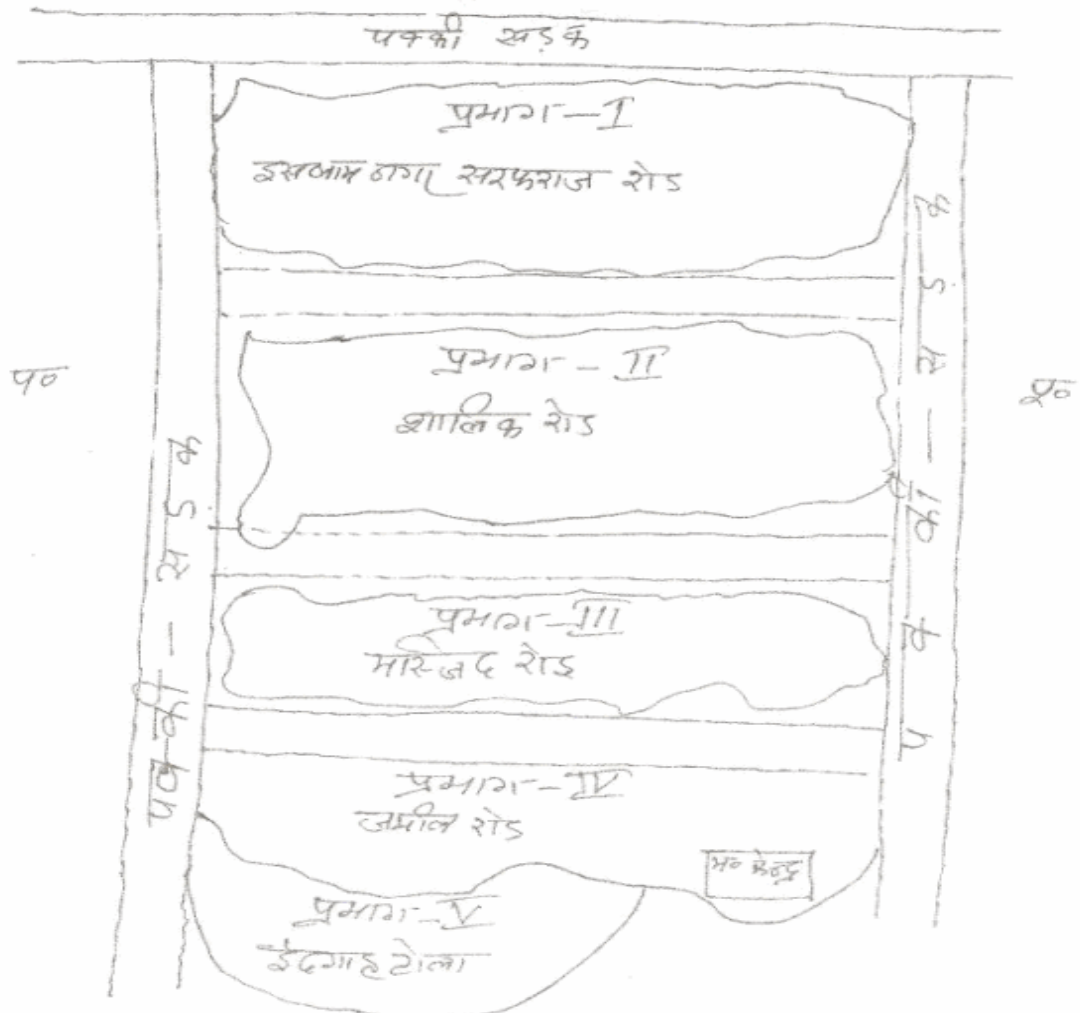 पक्की सड़क
प्रभाग-I
इसलाम नगर सरफराज रोड
प०
पक्की - सडक
प्रभाग - II
शालिक रोड
पू०
पक्की - सडक
प्रभाग-III
मस्जिद रोड
प्रभाग-IV
जमील रोड
म० केन्द्र
प्रभाग-V
ईदगाह टोला